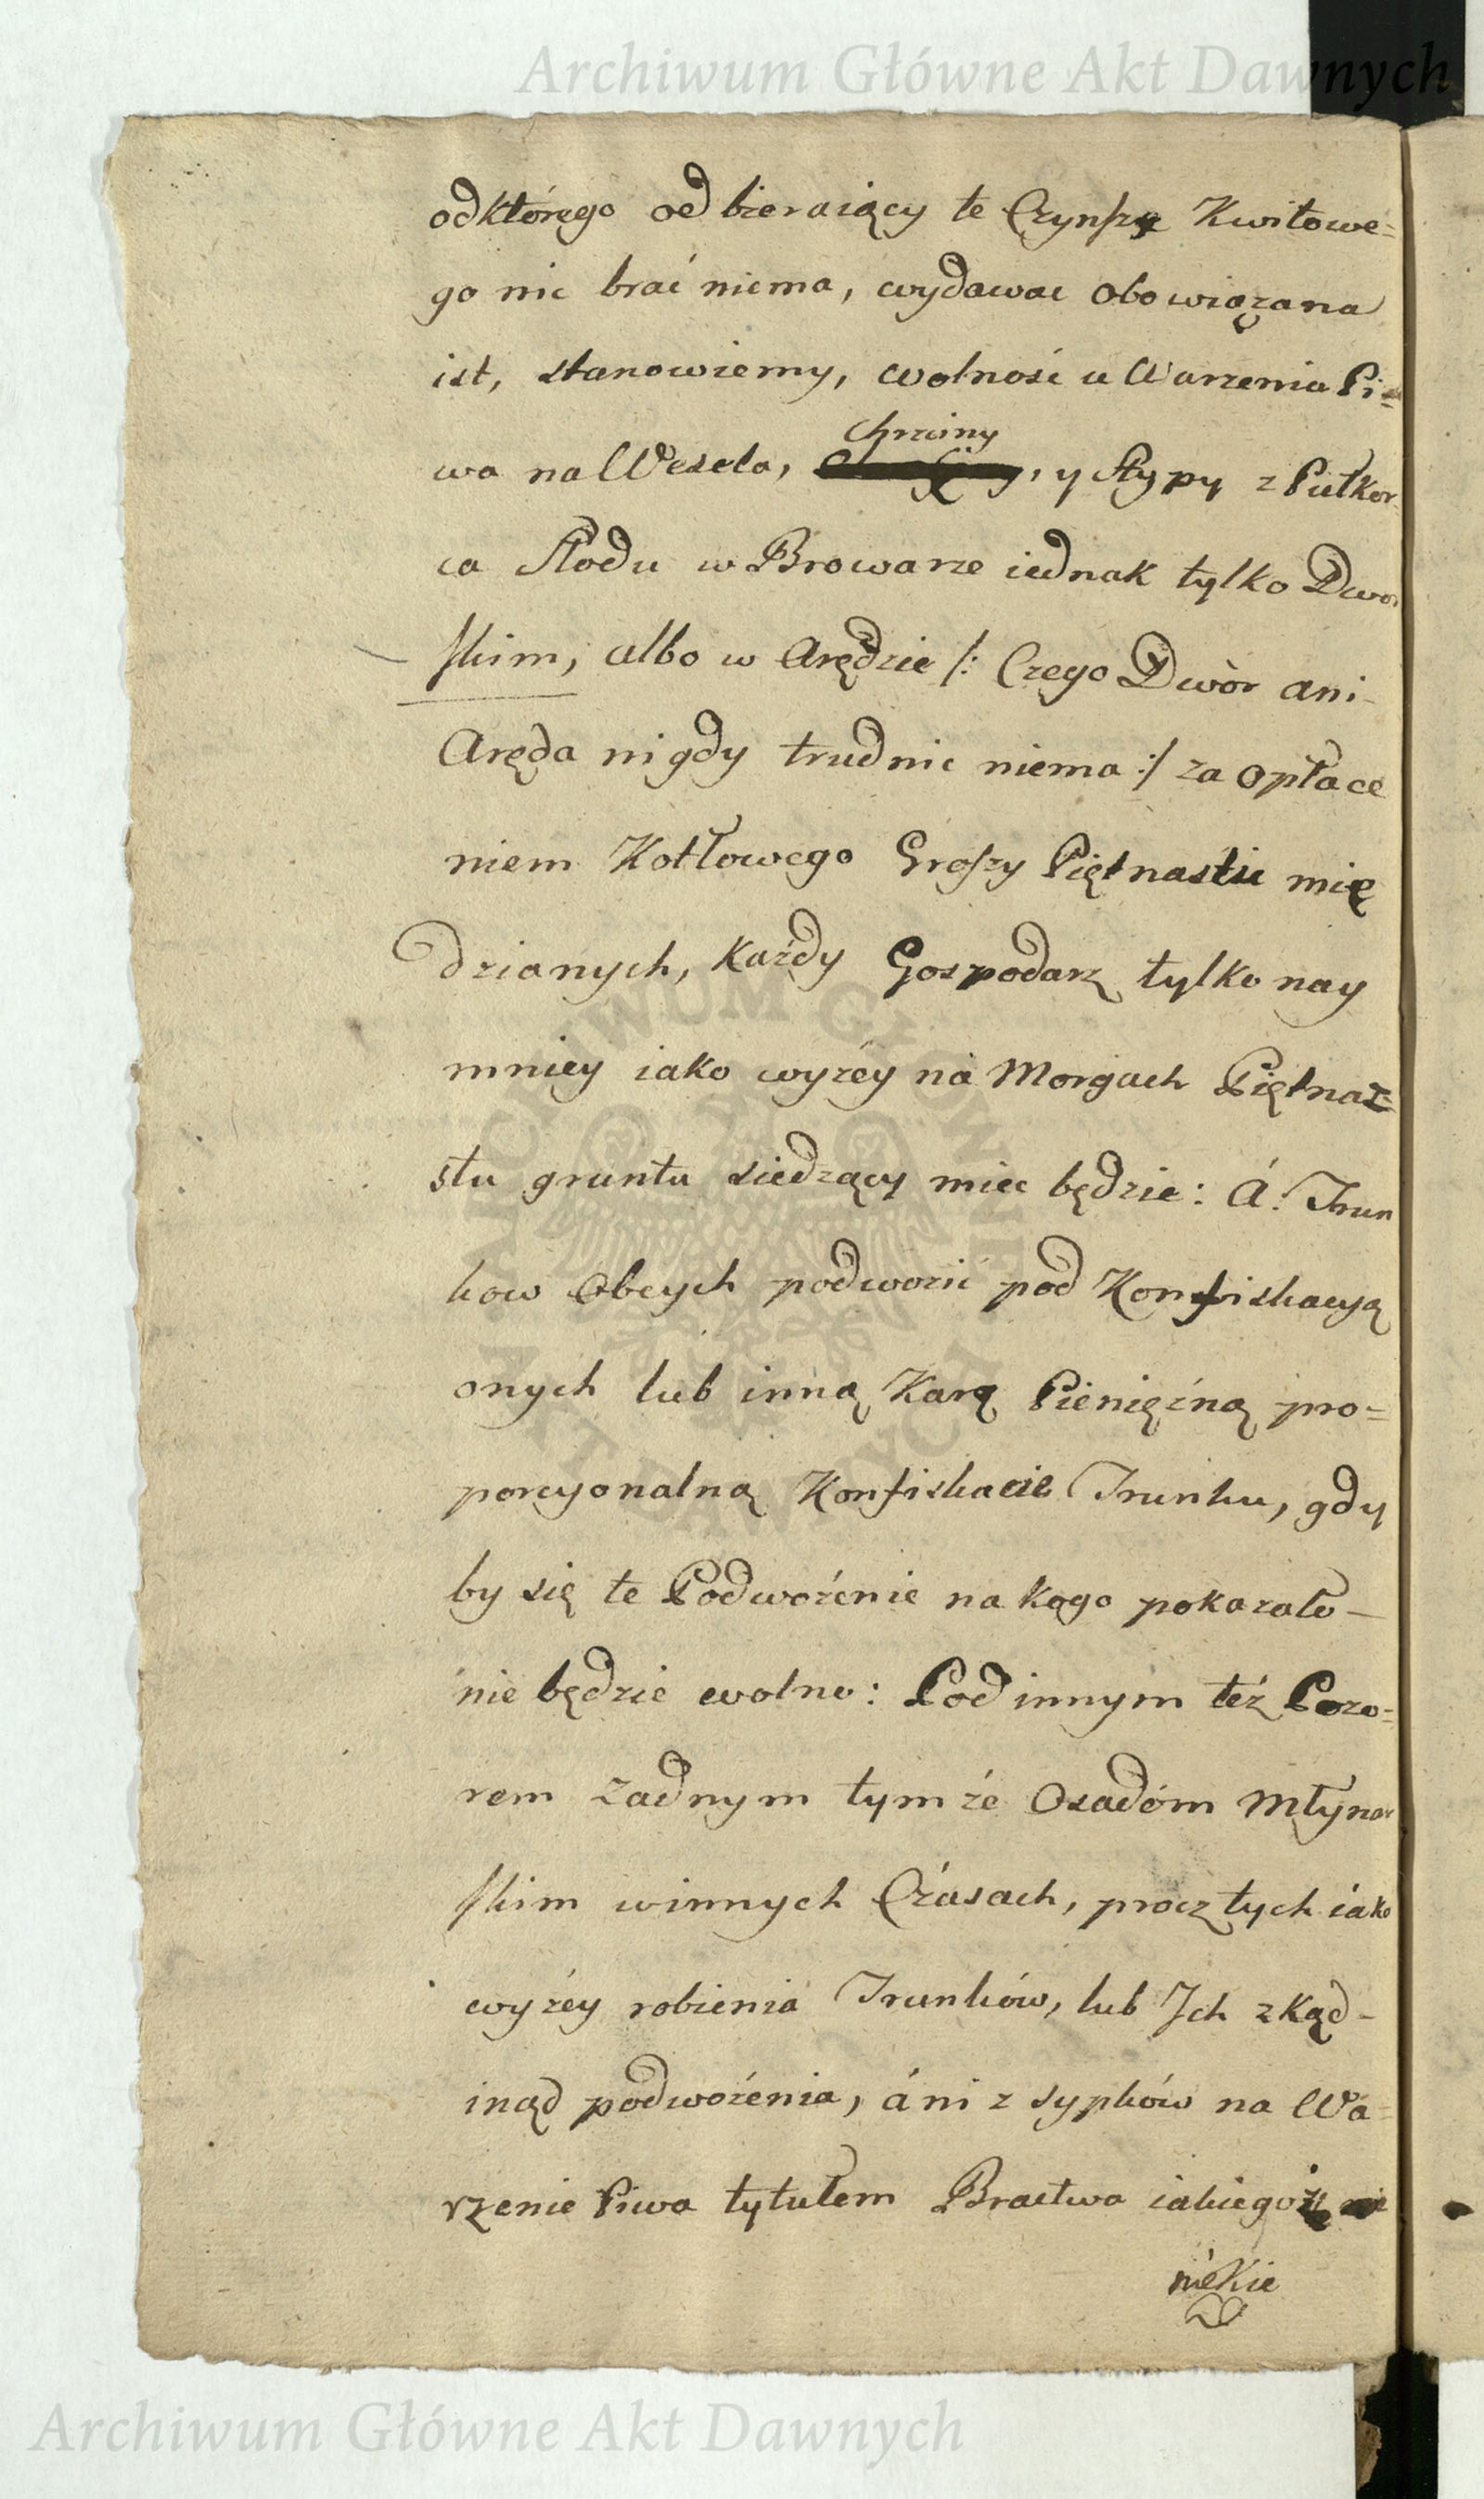 Archiwum Główne Akt Dawnych
odktórego odbieraiący te Czynsze Kwitowe=
go nic brać niema, wydawac obowiązana
ist, stanowiemy, wolność u Warzenia Pi=
chrzciny
wa na Wesela, , y Stypy z Pułkor
ca Słodu w Browarze iednak tylko Dwor
skim, albo w Arędzie /: Czego Dwòr ani
Aręda nigdy trudnic niema :/ za opłace
niem Kotłowego Groszy Piętnastu mie
dzianych, każdy Gospodarz tylko nay
mniey iako wyżey na Morgach Piętna=
stu gruntu siedzący miec będzie: á Trun
kow Obcych podwozić pod Konfiskacyą
onych lub inną Karą Pieniężną pro=
porcyonalną Konfiskacie Trunku, gdy
by się te Podwożenie na kogo pokazało –
nie będzie wolno: Pod innym też Pozo=
rem żadnym tymże Osadóm Młynar
skim winnych Czásach, procz tych iako
wyżey robienia Trunków, lub Ich zkąd-
inąd podwożenia, áni zsypków na Wa=
rzenie Piwa tytułem Bractwa iakiegoż
niekie
ARCHIWUM GŁÓWNE AKT DAWNYCH
Archiwum Główne Akt Dawnych